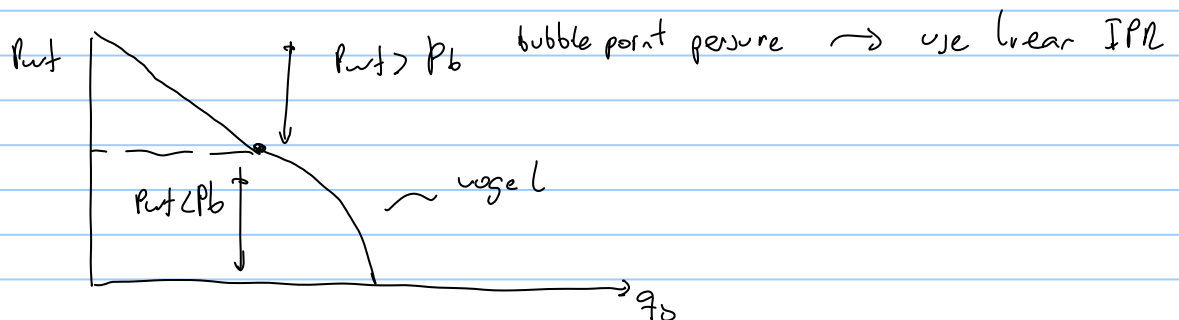 Pwf
Pwf > Pb
bubble point peisure → use linear IPR
Pwf < Pb
vogel
qo